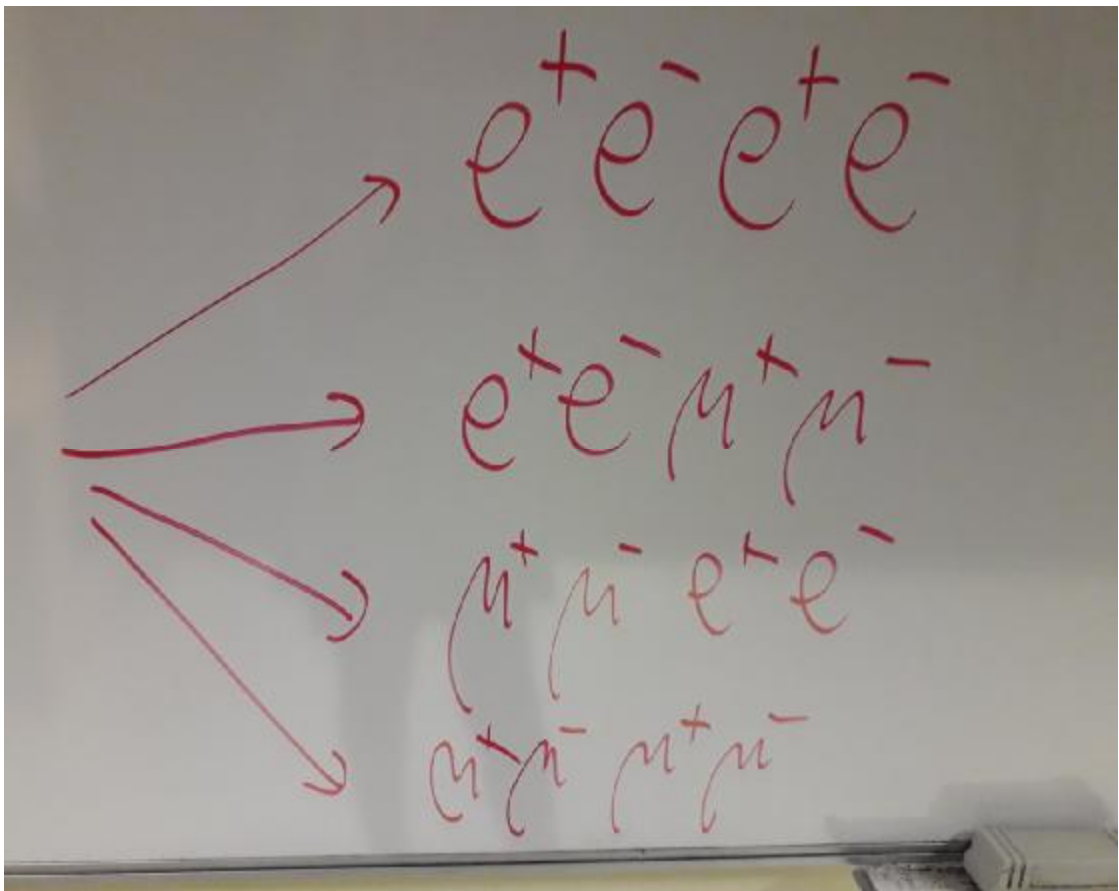 e⁺ e⁻ e⁺ e⁻
e⁺ e⁻ μ⁺ μ⁻
μ⁺ μ⁻ e⁺ e⁻
μ⁺ μ⁻ μ⁺ μ⁻